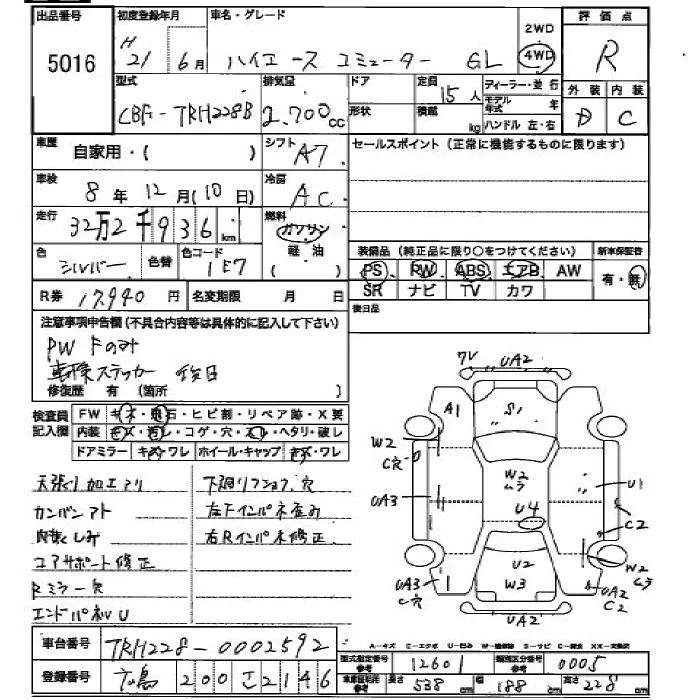 出品番号 初度登録年月 車名・グレード 2WD 評価点
5016 H 21年 6月 ハイエース コミューター GL 4WD R
型式 排気量 ドア 定員 15人 ディーラー・並行 外装 内装
CBF-TRH228B 2.700cc 形状 積載 kg モデル年式 年 D C
ハンドル 左・右
車歴 自家用・( ) シフト A7 セールスポイント(正常に機能するものに限ります)
車検 8年 12月(10日) 冷房 AC
走行 32万2千936km 燃料 ガソリン
軽油 装備品(純正品に限り○をつけてください) 新車保証書
色 シルバー 色替 色コード 1E7 PS PW ABS エアB AW 有・無
SR ナビ TV カワ
R券 17,940円 名変期限 月 日 後日品
注意事項申告欄(不具合内容等は具体的に記入して下さい)
PW Fのみ
車検ステッカー 後日
修復歴 有(箇所 )
検査員 FW キズ・飛石・ヒビ割・リペア跡・X要
記入欄 内装 キズ・汚レ・コゲ・穴・スレ・ヘタリ・破レ
ドアミラー キズ・ワレ ホイール・キャップ キズ・ワレ
天張り加工アリ 下廻りフショク穴
カンバンアト 左Fインパネ歪み
内装しみ 右Rインパネ修正
コアサポート修正
Rミラー欠
エンドパネルU
7V UA2
A1 S1
W2
C穴
W2
ムラ
UA3 U1
U4 C2
U2 W2
ムラ
UA3
C穴 W3 UA2
C2
UA2
A-キズ E-エクボ U-凹み W-補修跡 S-サビ C-腐食 XX-交換済
車台番号 TRH228-0002592
型式指定番号 参考 12601 類別区分番号 参考 0005
登録番号 広島 200 さ 2146
車庫証明用 参考 長さ 538cm 幅 188cm 高さ 228cm